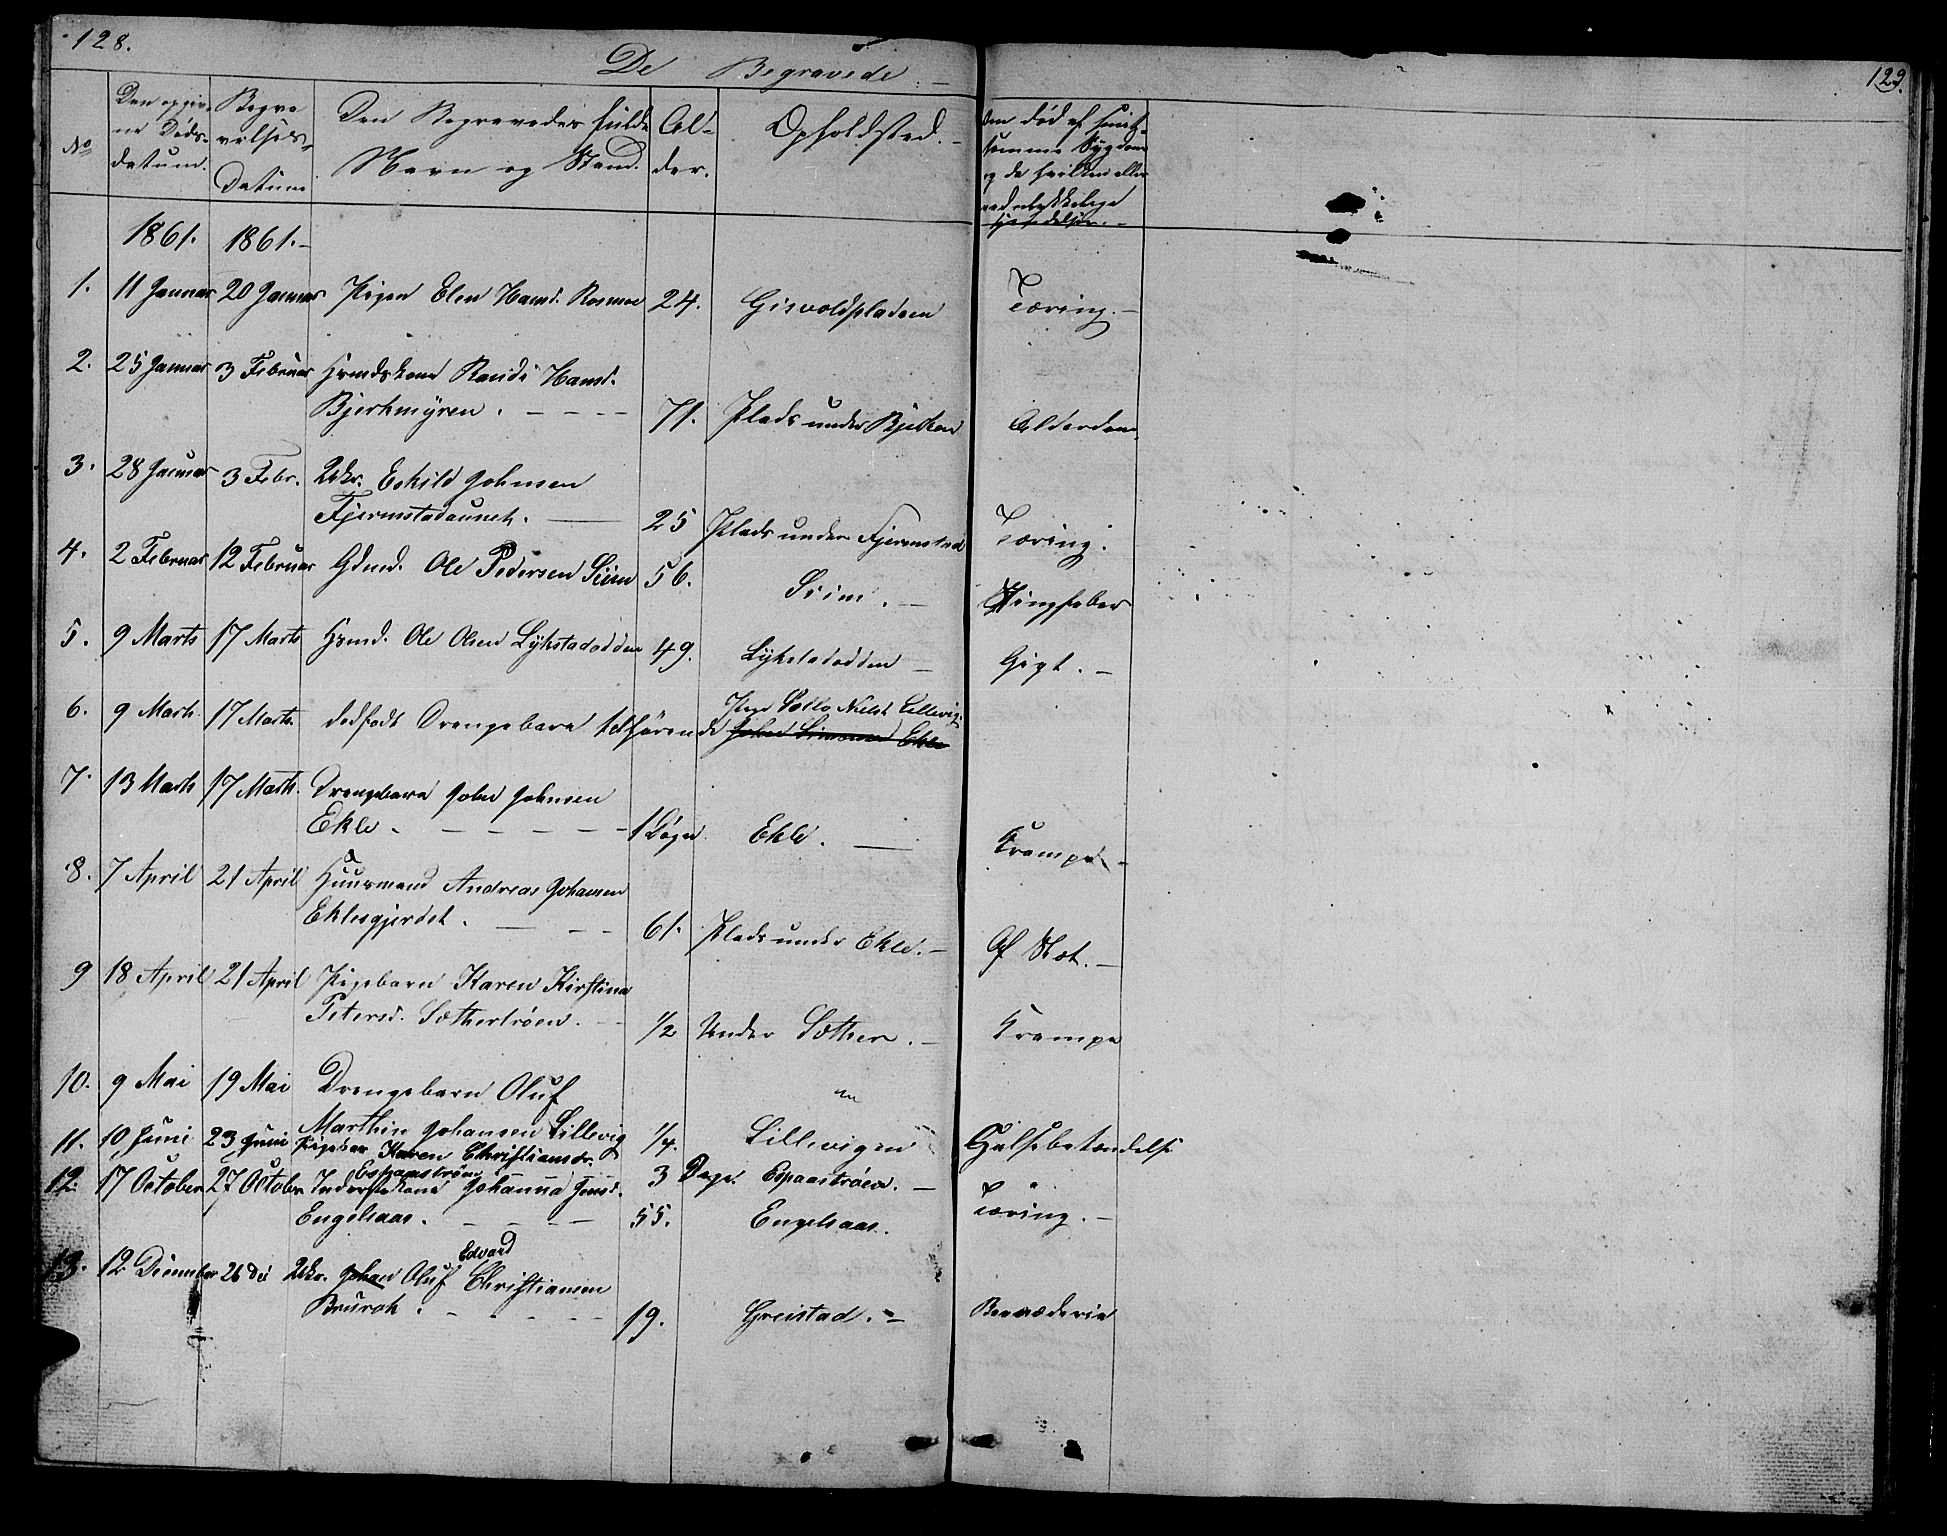 128.
129.
De Begravede.
No
Den opgivne Dødsdatum.
Begravelses-Datum
Den Begravedes fulde Navn og Stand.
Alder.
Opholdsted.
Om død af smitsomme Sygdom og da hvilken eller
1861. 1861.
1. 11 Januar 20 Januar Pigen Elen Hansd. Rosmoe 24. Gisvoldpladsen Tæring.
2. 25 Januar 3 Februar Hsmdskone Randi Hansd.
Bjerkmyren. 71. Plads under Bjerken Alderdom
3. 28 Januar 3 Febr. Ukr. Eskild Johnsen
Fjermstadaunet. 25 Plads under Fjermstad Tæring.
4. 2 Februar 12 Februar Gdmd. Ole Pedersen Seim 56. Seim.
5. 9 Marts 17 Marts Hsmd. Ole Olsen Lykstadodden 49. Lykstadodden Gigt.
6. 9 Marts 17 Marts. dødfødt Drengebarn tilhørende Lillevig.
7. 13 Marts 17 Marts. Drengebarn John Johnsen
Ekle. 1 Døgn. Ekle. Krampe
8. 7 April 21 April Huusmand Andreas Johansen
Eklesgjerdet. 61. Plads under Ekle. Af Slet.
9 18 April 21 April Pigebarn Karen Kirstina
Petersd. Sæthertrøen. 1/2 Under Sæther. Krampe
10. 9 Mai 19 Mai Drengebarn Oluf "
Marthin Johansen Lillevig 1/4 Lillevigen Halsebetændelse
11. 10 Juni 23 Juni Pigebarn Karen Christiansdr.
Espaastrøen 3 Dage. Espaastrøen. "
12. 17 October 27 October Inderstkone Johanna Jonsd.
Engelsaas. 55. Engelsaas. Tæring.
13. 12 December 26 De Ukr. Johan Oluf Edvard Christiansen
Brurok. 19. Greistad.